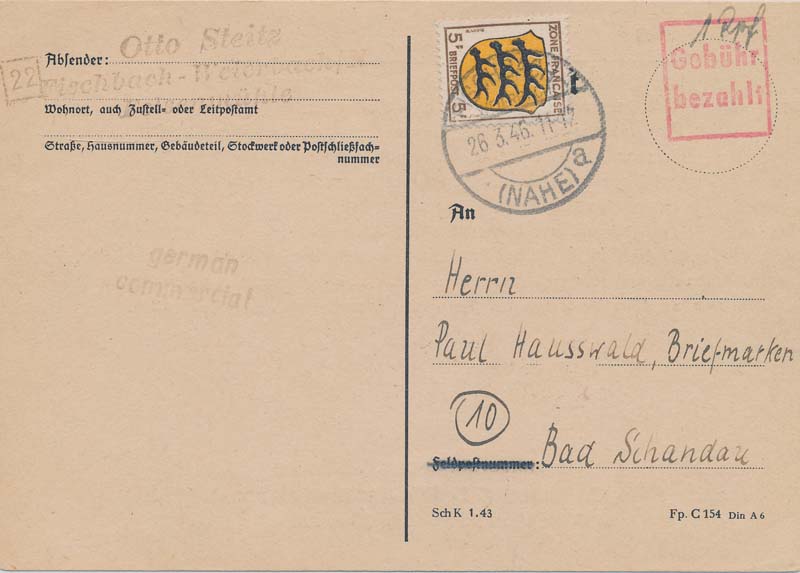 Absender:
Otto Steitz
22
Fischbach-Weierbach
Wohnort, auch Zustell- oder Leitpostamt
Straße, Hausnummer, Gebäudeteil, Stockwerk oder Postschließfach-
nummer
german
commercial
5 Pf BRIEFPOST 5 Pf
ZONE FRANÇAISE
26.3.46.11-12
a
(NAHE)
1 Rpf
Gebühr
bezahlt
An
Herrn
Paul Hausswald, Briefmarken
10
Feldpostnummer: Bad Schandau
Sch K 1.43
Fp. C 154 Din A 6